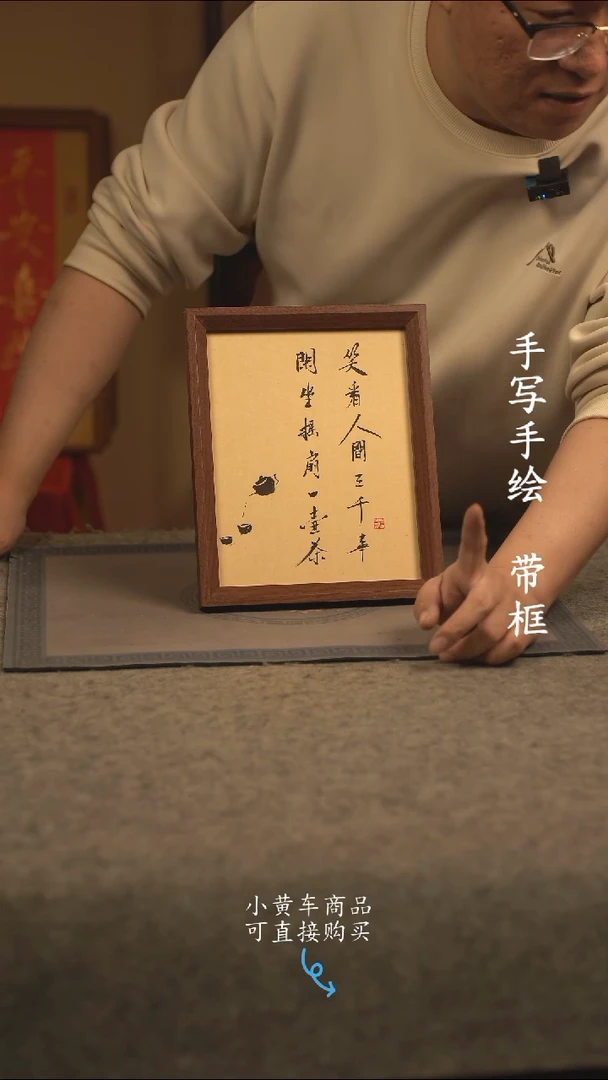 笑看人間三千事
閑坐搖扇一壺茶
手写手绘 带框
小黄车商品
可直接购买